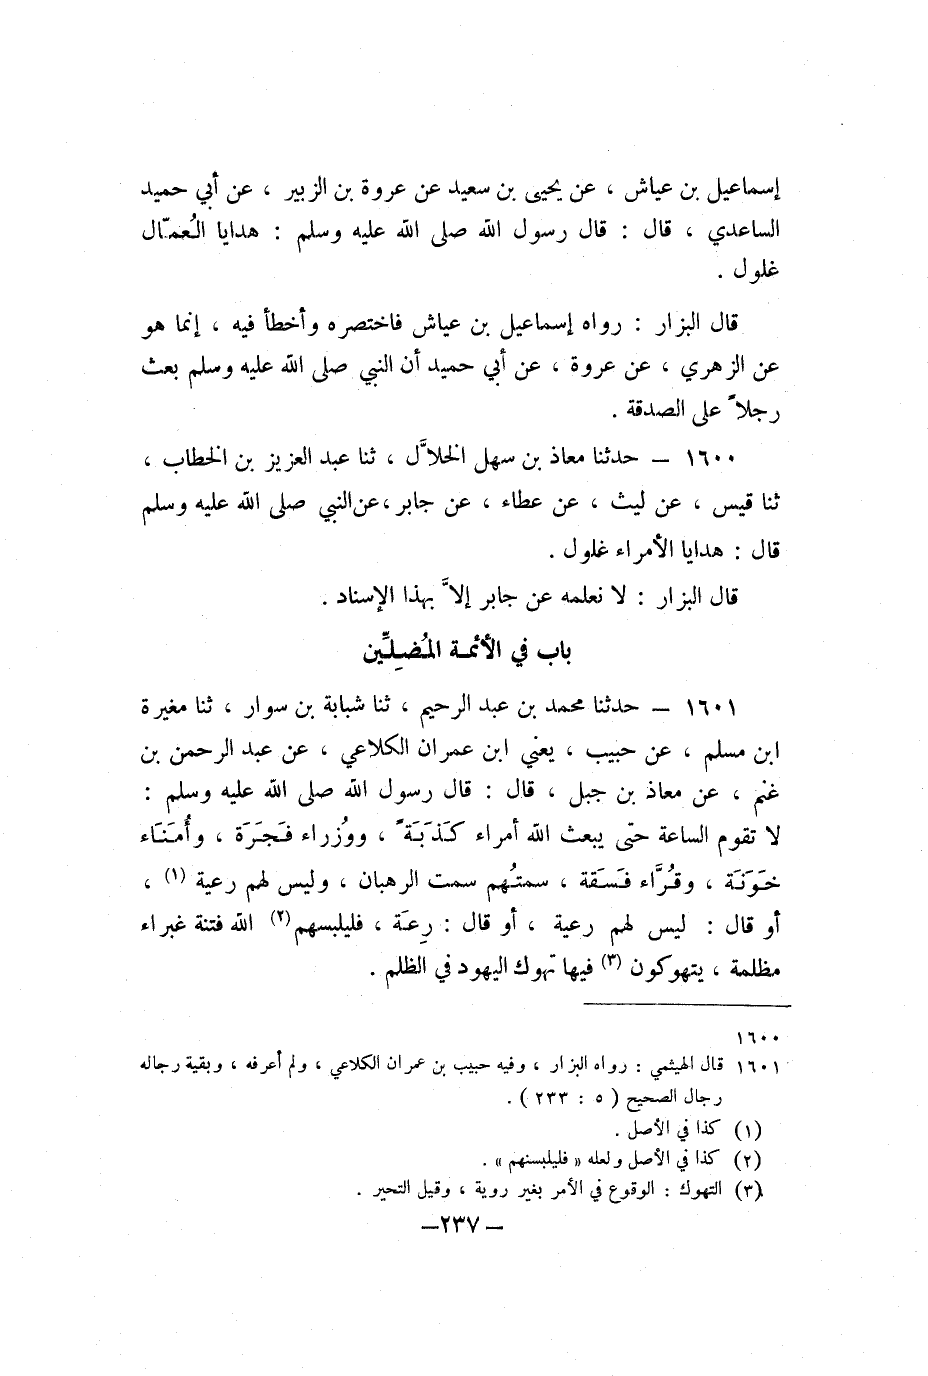 إسماعيل بن عياش ، عن يحيى بن سعيد عن عروة بن الزبير ، عن أبي حميد
الساعدي ، قال : قال رسول الله صلى الله عليه وسلم : هدايا العُمـّال
غلول .
قال البزار : رواه إسماعيل بن عياش فاختصره وأخطأ فيه ، إنما هو
عن الزهري ، عن عروة ، عن أبي حميد أن النبي صلى الله عليه وسلم بعث
رجلاً على الصدقة .
١٦٠٠ – حدثنا معاذ بن سهل الخلاَّل ، ثنا عبد العزيز بن الخطاب ،
ثنا قيس ، عن ليث ، عن عطاء ، عن جابر ، عن النبي صلى الله عليه وسلم
قال : هدايا الأمراء غلول .
قال البزار : لا نعلمه عن جابر إلاَّ بهذا الإسناد .
باب في الأئمـة المُضِلِّين
١٦٠١ – حدثنا محمد بن عبد الرحيم ، ثنا شبابة بن سوار ، ثنا مغيرة
ابن مسلم ، عن حبيب ، يعني ابن عمران الكلاعي ، عن عبد الرحمن بن
غنم ، عن معاذ بن جبل ، قال : قال رسول الله صلى الله عليه وسلم :
لا تقوم الساعة حتى يبعث الله أمراء كَذَبَةً ، ووُزراء فَجَرَة ، وأُمَنَاء
خَوَنَة ، وقُرَّاء فَسَقة ، سمتُهم سمت الرهبان ، وليس لهم رعية (١) ،
أو قال : ليس لهم رعية ، أو قال : رِعَة ، فليلبسهم (٢) الله فتنة غبراء
مظلمة ، يتهوكون (٣) فيها تهوك اليهود في الظلم .
١٦٠٠
١٦٠١ قال الهيثمي : رواه البزار ، وفيه حبيب بن عمران الكلاعي ، ولم أعرفه ، وبقية رجاله
رجال الصحيح ( ٥ : ٢٣٣ ) .
(١) كذا في الأصل .
(٢) كذا في الأصل ولعله « فليلبسنهم » .
(٣) التهوك : الوقوع في الأمر بغير روية ، وقيل التحير .
– ٢٣٧ –